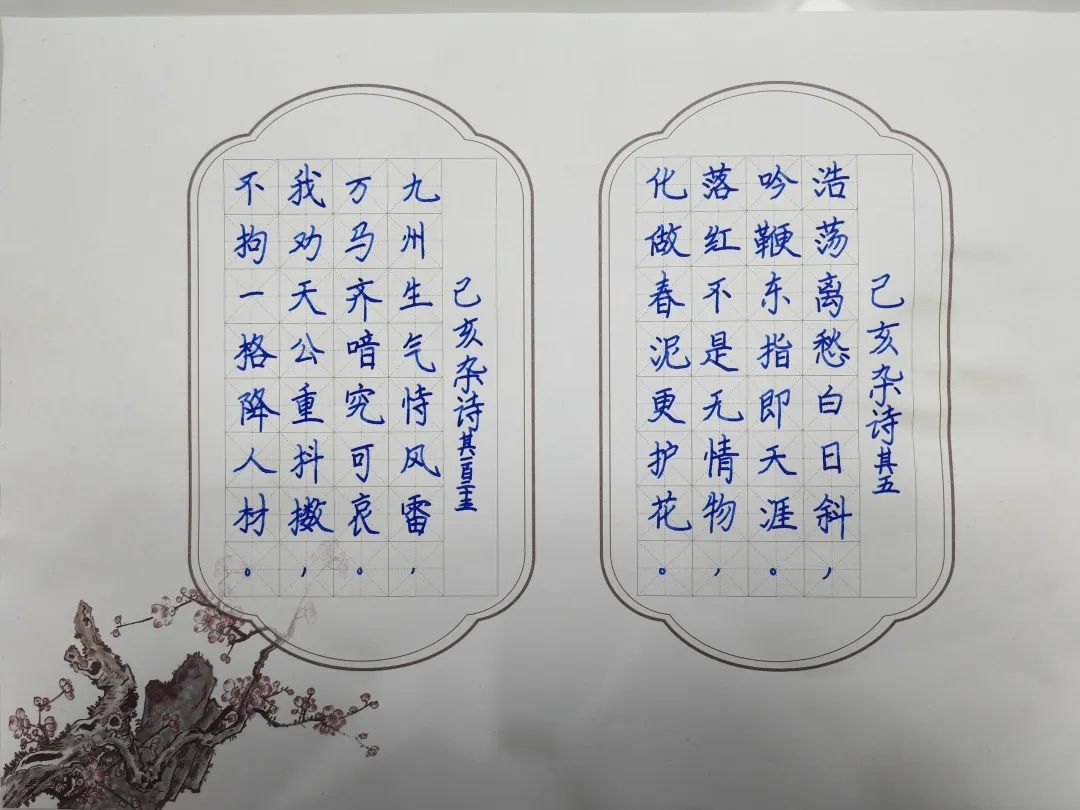 己亥杂诗其五
浩荡离愁白日斜，
吟鞭东指即天涯。
落红不是无情物，
化做春泥更护花。
己亥杂诗其一百二十五
九州生气恃风雷，
万马齐喑究可哀。
我劝天公重抖擞，
不拘一格降人材。